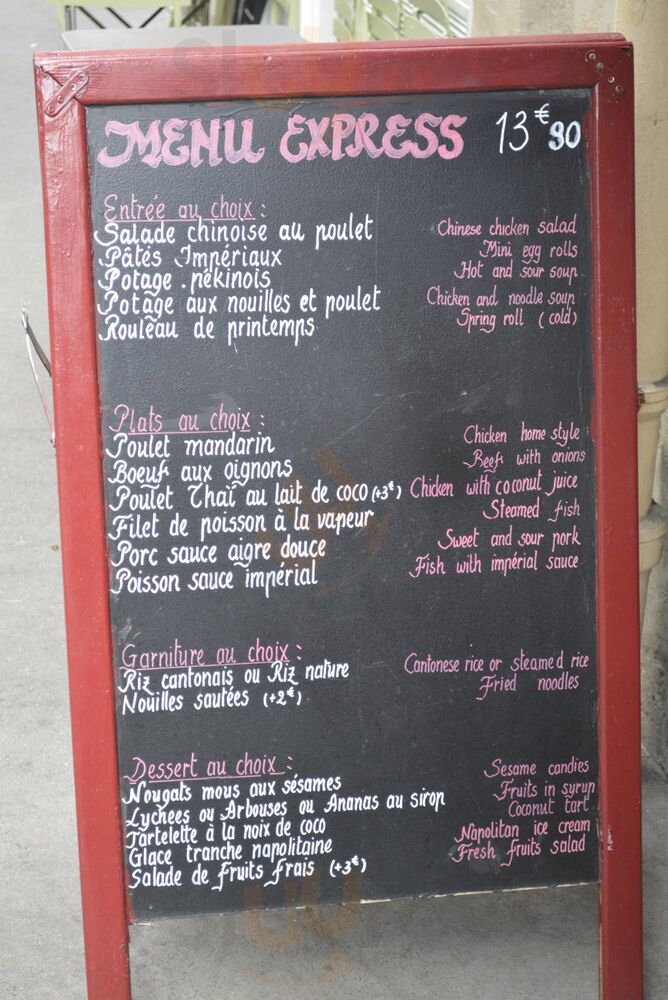 MENU EXPRESS 13€90
Entrée au choix :
Salade chinoise au poulet Chinese chicken salad
Pâtés Impériaux Mini egg rolls
Potage pékinois Hot and sour soup
Potage aux nouilles et poulet Chicken and noodle soup
Rouleau de printemps Spring roll (cold)
Plats au choix :
Poulet mandarin Chicken home style
Boeuf aux oignons Beef with onions
Poulet Thaï au lait de coco (+3€) Chicken with coconut juice
Filet de poisson à la vapeur Steamed fish
Porc sauce aigre douce Sweet and sour pork
Poisson sauce impérial Fish with impérial sauce
Garniture au choix :
Riz cantonais ou Riz nature Cantonese rice or steamed rice
Nouilles sautées (+2€) Fried noodles
Dessert au choix :
Nougats mous aux sésames Sesame candies
Lychees ou Arbouses ou Ananas au sirop Fruits in syrup
Tartelette à la noix de coco Coconut tart
Glace tranche napolitaine Napolitan ice cream
Salade de fruits frais (+3€) Fresh fruits salad